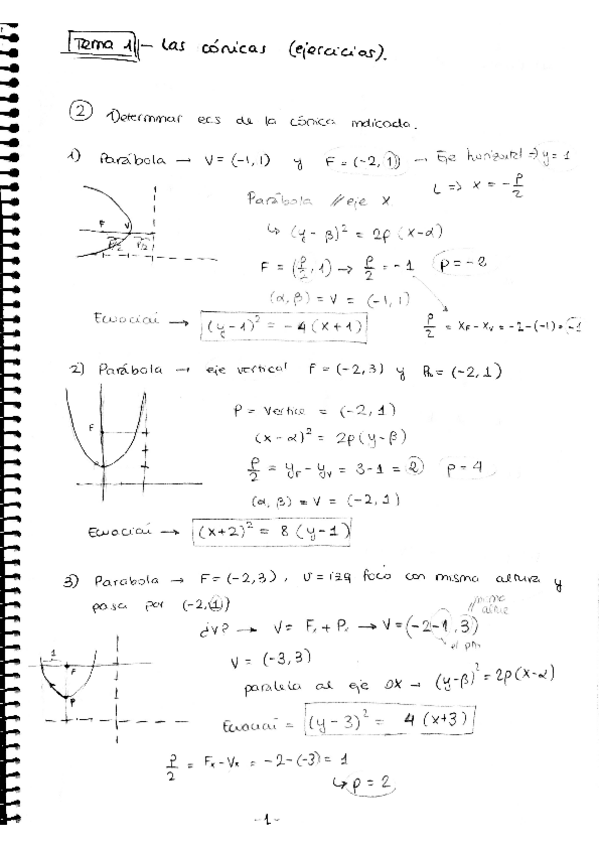 Tema 1 - Las cónicas (ejercicios).
② Determinar ecs de la cónica indicada.
1) Parábola → V = (-1, 1) y F = (-2, 1) → Eje horizontal ⇒ y = 1
L ⇒ x = -p/2
Parábola // eje x
↳ (y - β)² = 2p (x-α)
F V
p/2 p/2
F = (p/2, 1) → p/2 = -1 p = -2
(α, β) = V = (-1, 1)
Ecuociai → (y-1)² = -4 (x+1)
p/2 = xF - xV = -2-(-1) = -1
2) Parábola → eje vertical F = (-2, 3) y = (-2, 1)
F
P = Vertice = (-2, 1)
(x - α)² = 2p (y-β)
p/2 = yF - yV = 3-1 = 2 p = 4
(α, β) = V = (-2, 1)
Ecuociai → (x+2)² = 8 (y-1)
3) Parabola → F = (-2, 3), V = izq foco con misma altura y
pasa por (-2, 1)
misma altura
¿V? → V = → V = (-2-1, 3)
V = (-3, 3)
1 F
P
paralela al eje OX → (y-β)² = 2p (x-α)
Ecuociai = (y-3)² = 4 (x+3)
p/2 = Fx - Vx = -2-(-3) = 1
↳ p = 2
-1-